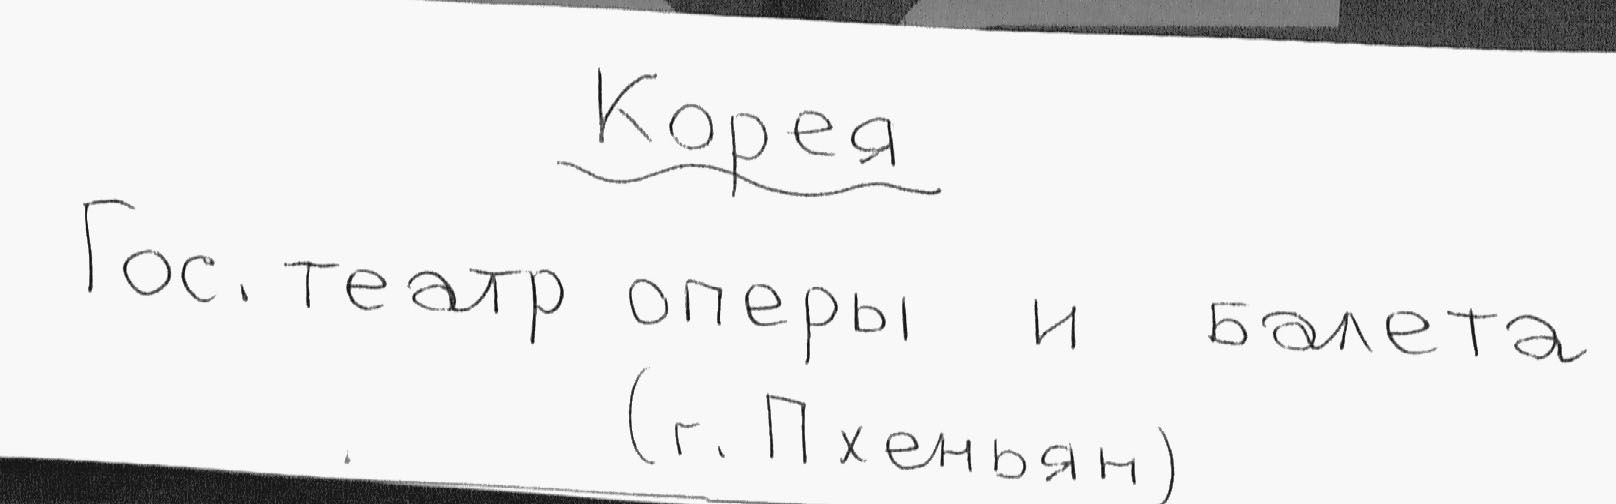 Корея
Гос. театр оперы и балета
(г. Пхеньян)